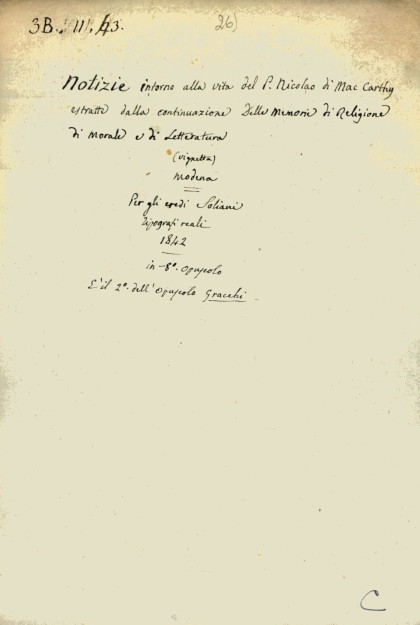 3B. VIII. 43.
26)
Notizie intorno alla vita del P. Nicolao di Mac Carthy
estratte dalla continuazione Delle Memorie di Religione
di Morale e di Letteratura
(vignetta)
Modena
Per gli eredi Soliani
tipografi reali
1842
in-8°. opuscolo
E' il 2°. dell'opuscolo Gracchi.
C